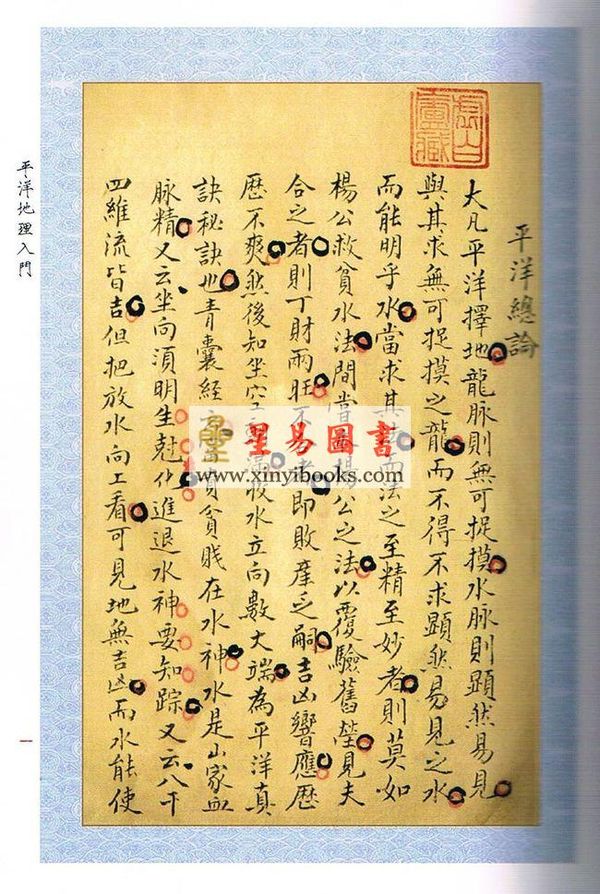 平洋總論
大凡平洋擇地龍脉則無可捉摸水脉則顯然易見
與其求無可捉摸之龍而不得不求顯然易見之水
而能明乎水當求其而法之至精至妙者則莫如
楊公救貧水法間嘗楊公之法以覆驗舊塋見夫
合之者則丁財兩旺不者即敗產乏嗣吉凶響應歷
歷不爽然後知坐空滿收水立向數大端為平洋真
訣秘訣也青囊經貴貧賤在水神水是山家血
脉精又云坐向須明生尅化進退水神要知踪又云八干
四維流皆吉但把放水向上看可見地無吉凶而水能使
虛白廬藏
平洋地理入門
一
星易圖書
www.xinyibooks.com